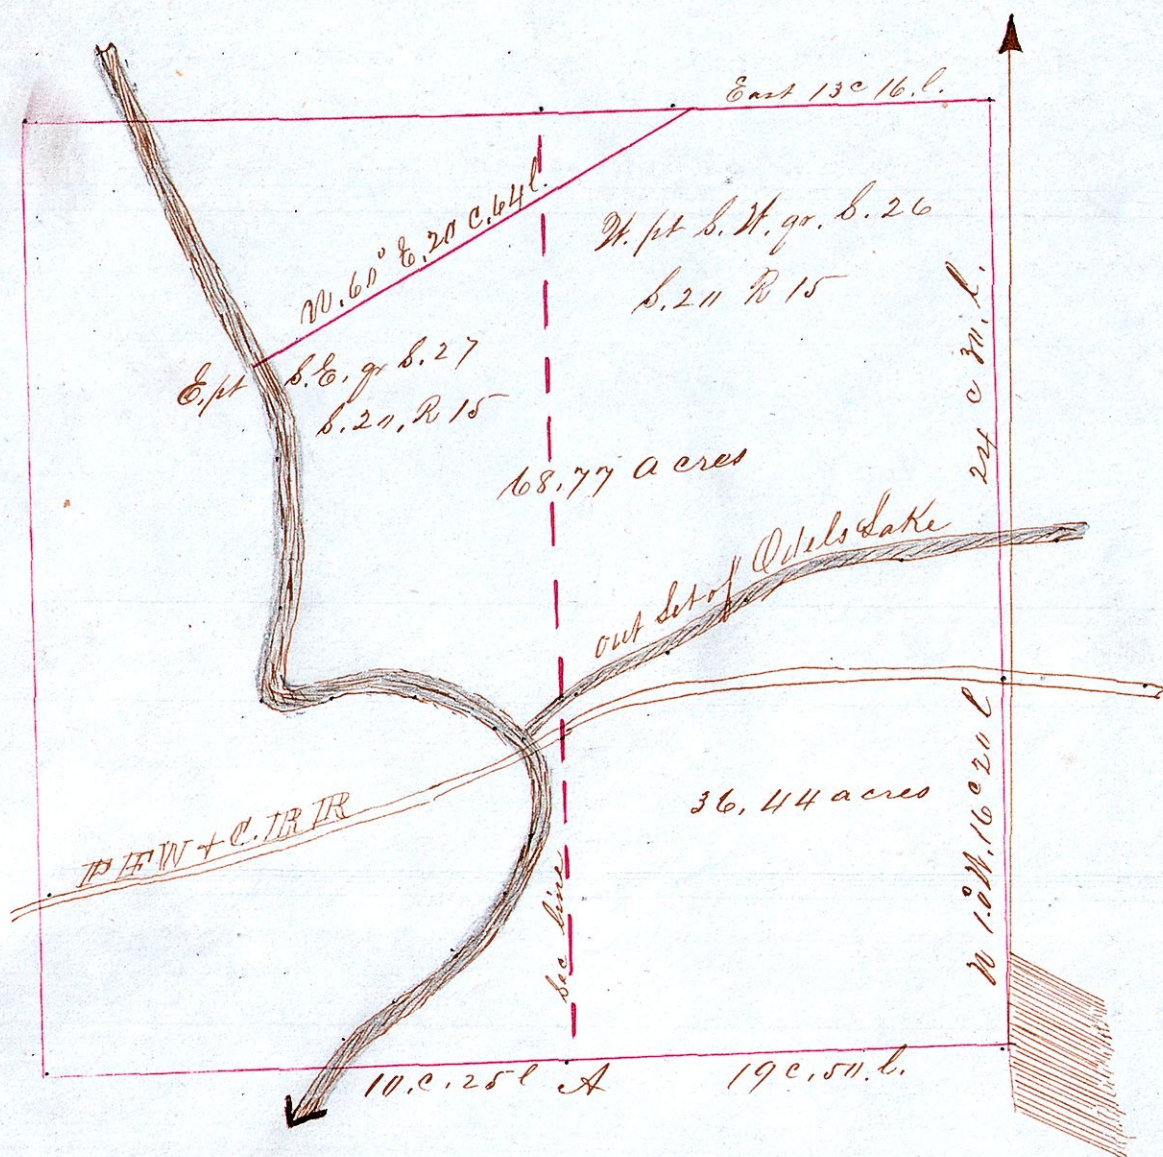 East 13c 16.l.
N. 60° E. 20 C. 64 l.
W. pt S. W. qr. S. 26
S. 20 R 15
24 c 30. l.
E. pt S. E. qr S. 27
S. 20, R 15
68.77 acres
out Let of Odels Lake
36,44 acres
P F W + C. R R
N 1.° W. 16c 20 l
Sec line
10. c. 25 l A 19 c, 50. l.